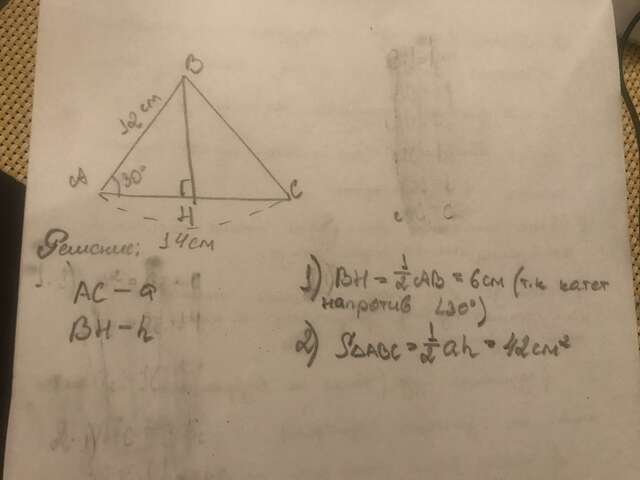 B
12 см
A 30° C
H
14 см
Решение:
AC – a
BH – h
1) BH = 1/2 AB = 6 см (т.к катет
напротив ∠30°)
2) S△ABC = 1/2 ah = 42 см²